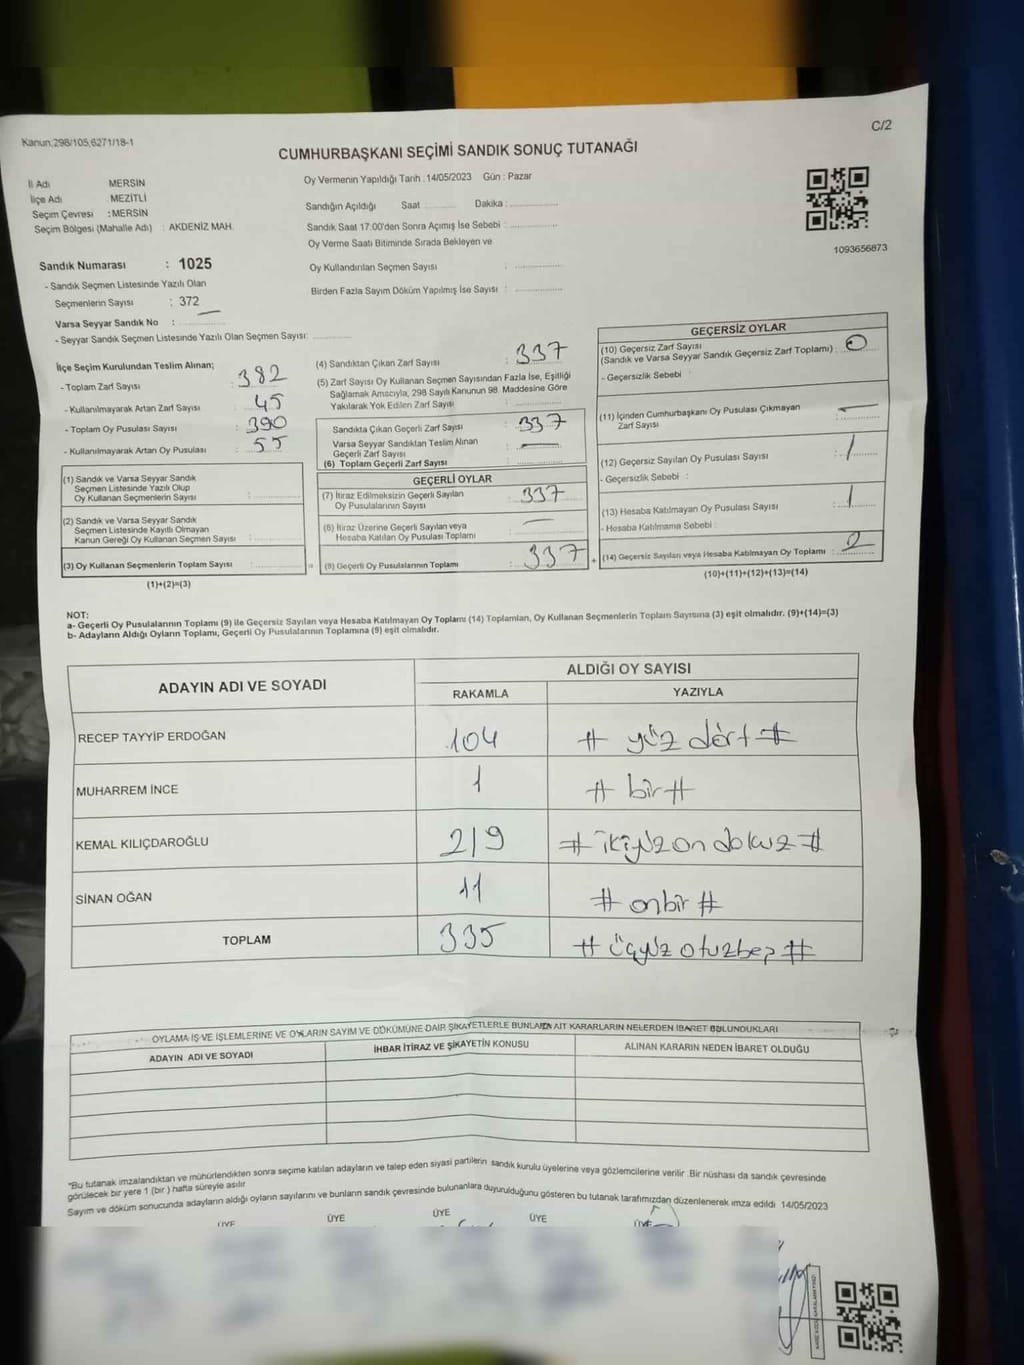 Kanun;298/105,6271/18-1
C/2
CUMHURBAŞKANI SEÇİMİ SANDIK SONUÇ TUTANAĞI
İl Adı MERSİN
İlçe Adı MEZİTLİ
Seçim Çevresi : MERSİN
Seçim Bölgesi (Mahalle Adı) : AKDENİZ MAH.
Sandık Numarası : 1025
- Sandık Seçmen Listesinde Yazılı Olan
Seçmenlerin Sayısı : 372
Varsa Seyyar Sandık No :
- Seyyar Sandık Seçmen Listesinde Yazılı Olan Seçmen Sayısı:
Oy Vermenin Yapıldığı Tarih : 14/05/2023 Gün : Pazar
Sandığın Açıldığı Saat Dakika :
Sandık Saat 17.00'den Sonra Açımış İse Sebebi :
Oy Verme Saati Bitiminde Sırada Bekleyen ve
Oy Kullandırılan Seçmen Sayısı :
Birden Fazla Sayım Döküm Yapılmış İse Sayısı :
1093656873
İlçe Seçim Kurulundan Teslim Alınan;
- Toplam Zarf Sayısı : 382
- Kullanılmayarak Artan Zarf Sayısı : 45
- Toplam Oy Pusulası Sayısı : 390
- Kullanılmayarak Artan Oy Pusulası : 55
(1) Sandık ve Varsa Seyyar Sandık
Seçmen Listesinde Yazılı Olup
Oy Kullanan Seçmenlerin Sayısı :
(2) Sandık ve Varsa Seyyar Sandık
Seçmen Listesinde Kayıtlı Olmayan
Kanun Gereği Oy Kullanan Seçmen Sayısı :
(3) Oy Kullanan Seçmenlerin Toplam Sayısı :
(1)+(2)=(3)
(4) Sandıktan Çıkan Zarf Sayısı : 337
(5) Zarf Sayısı Oy Kullanan Seçmen Sayısından Fazla İse, Eşitliği
Sağlamak Amacıyla, 298 Sayılı Kanunun 98. Maddesine Göre
Yakılarak Yok Edilen Zarf Sayısı :
Sandıkta Çıkan Geçerli Zarf Sayısı : 337
Varsa Seyyar Sandıktan Teslim Alınan
Geçerli Zarf Sayısı : —
(6) Toplam Geçerli Zarf Sayısı :
GEÇERLİ OYLAR
(7) İtiraz Edilmeksizin Geçerli Sayılan
Oy Pusulalarının Sayısı : 337
(8) İtiraz Üzerine Geçerli Sayılan veya
Hesaba Katılan Oy Pusulası Toplamı : —
(9) Geçerli Oy Pusulalarının Toplamı : 337
GEÇERSİZ OYLAR
(10) Geçersiz Zarf Sayısı
(Sandık ve Varsa Seyyar Sandık Geçersiz Zarf Toplamı) : 0
- Geçersizlik Sebebi :
(11) İçinden Cumhurbaşkanı Oy Pusulası Çıkmayan
Zarf Sayısı : —
(12) Geçersiz Sayılan Oy Pusulası Sayısı : 1
- Geçersizlik Sebebi :
(13) Hesaba Katılmayan Oy Pusulası Sayısı : 1
- Hesaba Katılmama Sebebi :
(14) Geçersiz Sayılan veya Hesaba Katılmayan Oy Toplamı : 2
(10)+(11)+(12)+(13)=(14)
NOT:
a- Geçerli Oy Pusulalarının Toplamı (9) ile Geçersiz Sayılan veya Hesaba Katılmayan Oy Toplamı (14) Toplamları, Oy Kullanan Seçmenlerin Toplam Sayısına (3) eşit olmalıdır. (9)+(14)=(3)
b- Adayların Aldığı Oyların Toplamı, Geçerli Oy Pusulalarının Toplamına (9) eşit olmalıdır.
ADAYIN ADI VE SOYADI ALDIĞI OY SAYISI
RAKAMLA YAZIYLA
RECEP TAYYİP ERDOĞAN 104 # yüz dört #
MUHARREM İNCE 1 # bir #
KEMAL KILIÇDAROĞLU 219 # ikiyüz on dokuz #
SİNAN OĞAN 11 # onbir #
TOPLAM 335 # üçyüz otuzbeş #
OYLAMA İŞ VE İŞLEMLERİNE VE OYLARIN SAYIM VE DÖKÜMÜNE DAİR ŞİKAYETLERLE BUNLARIN AİT KARARLARIN NELERDEN İBARET BULUNDUKLARI
ADAYIN ADI VE SOYADI İHBAR İTİRAZ VE ŞİKAYETİN KONUSU ALINAN KARARIN NEDEN İBARET OLDUĞU
*Bu tutanak imzalandıktan ve mühürlendikten sonra seçime katılan adayların ve talep eden siyasi partilerin sandık kurulu üyelerine veya gözlemcilerine verilir .Bir nüshası da sandık çevresinde
görülecek bir yere 1 (bir ) hafta süreyle asılır
Sayım ve döküm sonucunda adayların aldığı oyların sayılarını ve bunların sandık çevresinde bulunanlara duyurulduğunu gösteren bu tutanak tarafımızdan düzenlenerek imza edildi 14/05/2023
ÜYE ÜYE ÜYE ÜYE ÜYE